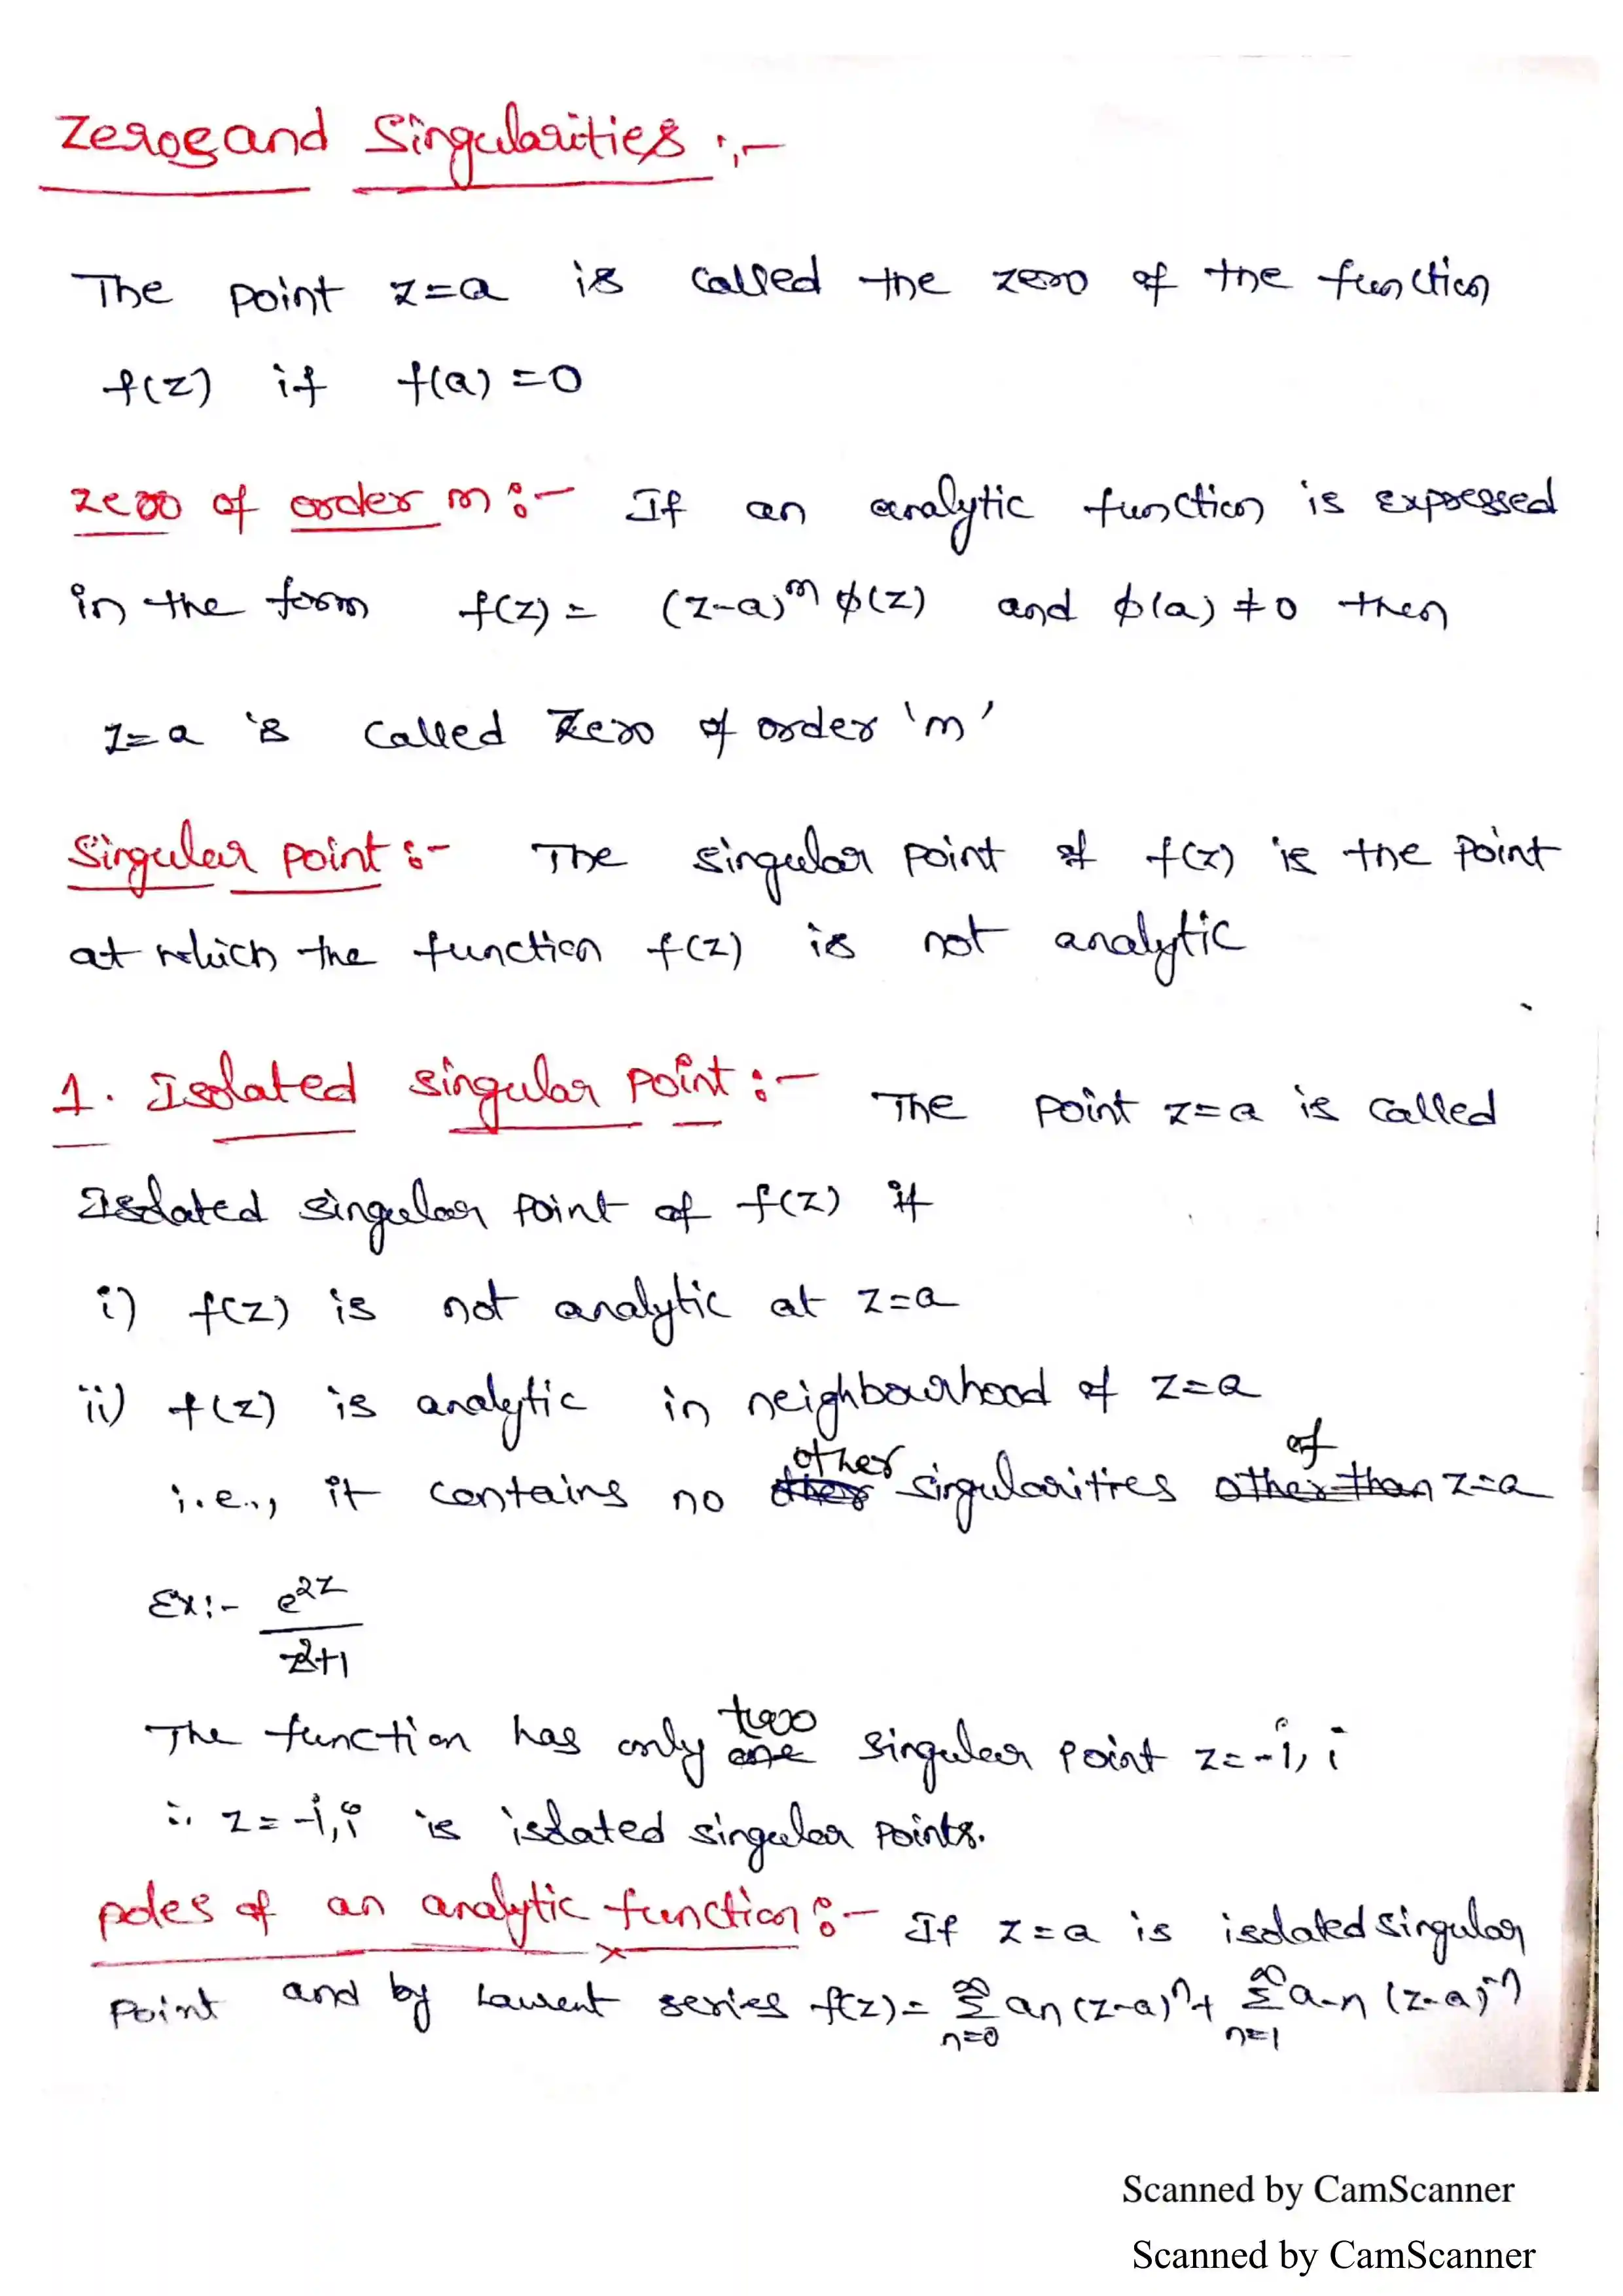 Zeros and Singularities :-
The point z=a is called the zero of the function
f(z) if f(a)=0
zero of order m :- If an analytic function is expressed
in the form f(z) = (z-a)^m φ(z) and φ(a) ≠ 0 then
z=a is called Zero of order 'm'
Singular point :- The singular point of f(z) is the point
at which the function f(z) is not analytic
1. Isolated singular point :- The point z=a is called
Isolated singular point of f(z) if
i) f(z) is not analytic at z=a
ii) f(z) is analytic in neighbourhood of z=a
i.e., it contains no other singularities of z=a
Ex:- e^2z / z^2+1
The function has only two singular point z=-i, i
∴ z=-i, i is isolated singular points.
poles of an analytic function :- If z=a is isolated singular
Point and by Laurent series f(z) = ∑_{n=0}^∞ a_n (z-a)^n + ∑_{n=1}^∞ a_{-n} (z-a)^{-n}
Scanned by CamScanner
Scanned by CamScanner